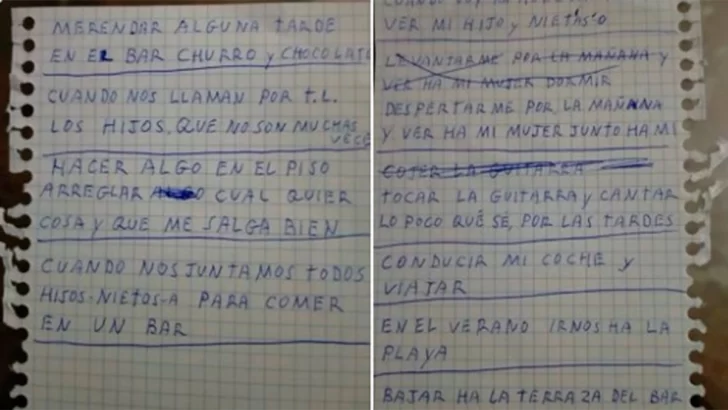 MERENDAR ALGUNA TARDE
EN EL BAR CHURRO Y CHOCOLATE
CUANDO NOS LLAMAN POR T.L.
LOS HIJOS, QUE NO SON MUCHAS
VECE
HACER ALGO EN EL PISO
ARREGLAR ALGO CUAL QUIER
COSA Y QUE ME SALGA BIEN
CUANDO NOS JUNTAMOS TODOS
HIJOS-NIETOS-A PARA COMER
EN UN BAR
VER MI HIJO Y NIETAS O
LEVANTARME POR LA MAÑANA Y
VER HA MI MUJER DORMIR
DESPERTARME POR LA MAÑANA
Y VER HA MI MUJER JUNTO HA MI
COJER LA GUITARRA
TOCAR LA GUITARRA Y CANTAR
LO POCO QUE SE, POR LAS TARDES
CONDUCIR MI COCHE Y
VIAJAR
EN EL VERANO IRNOS HA LA
PLAYA
BAJAR HA LA TERRAZA DEL BAR